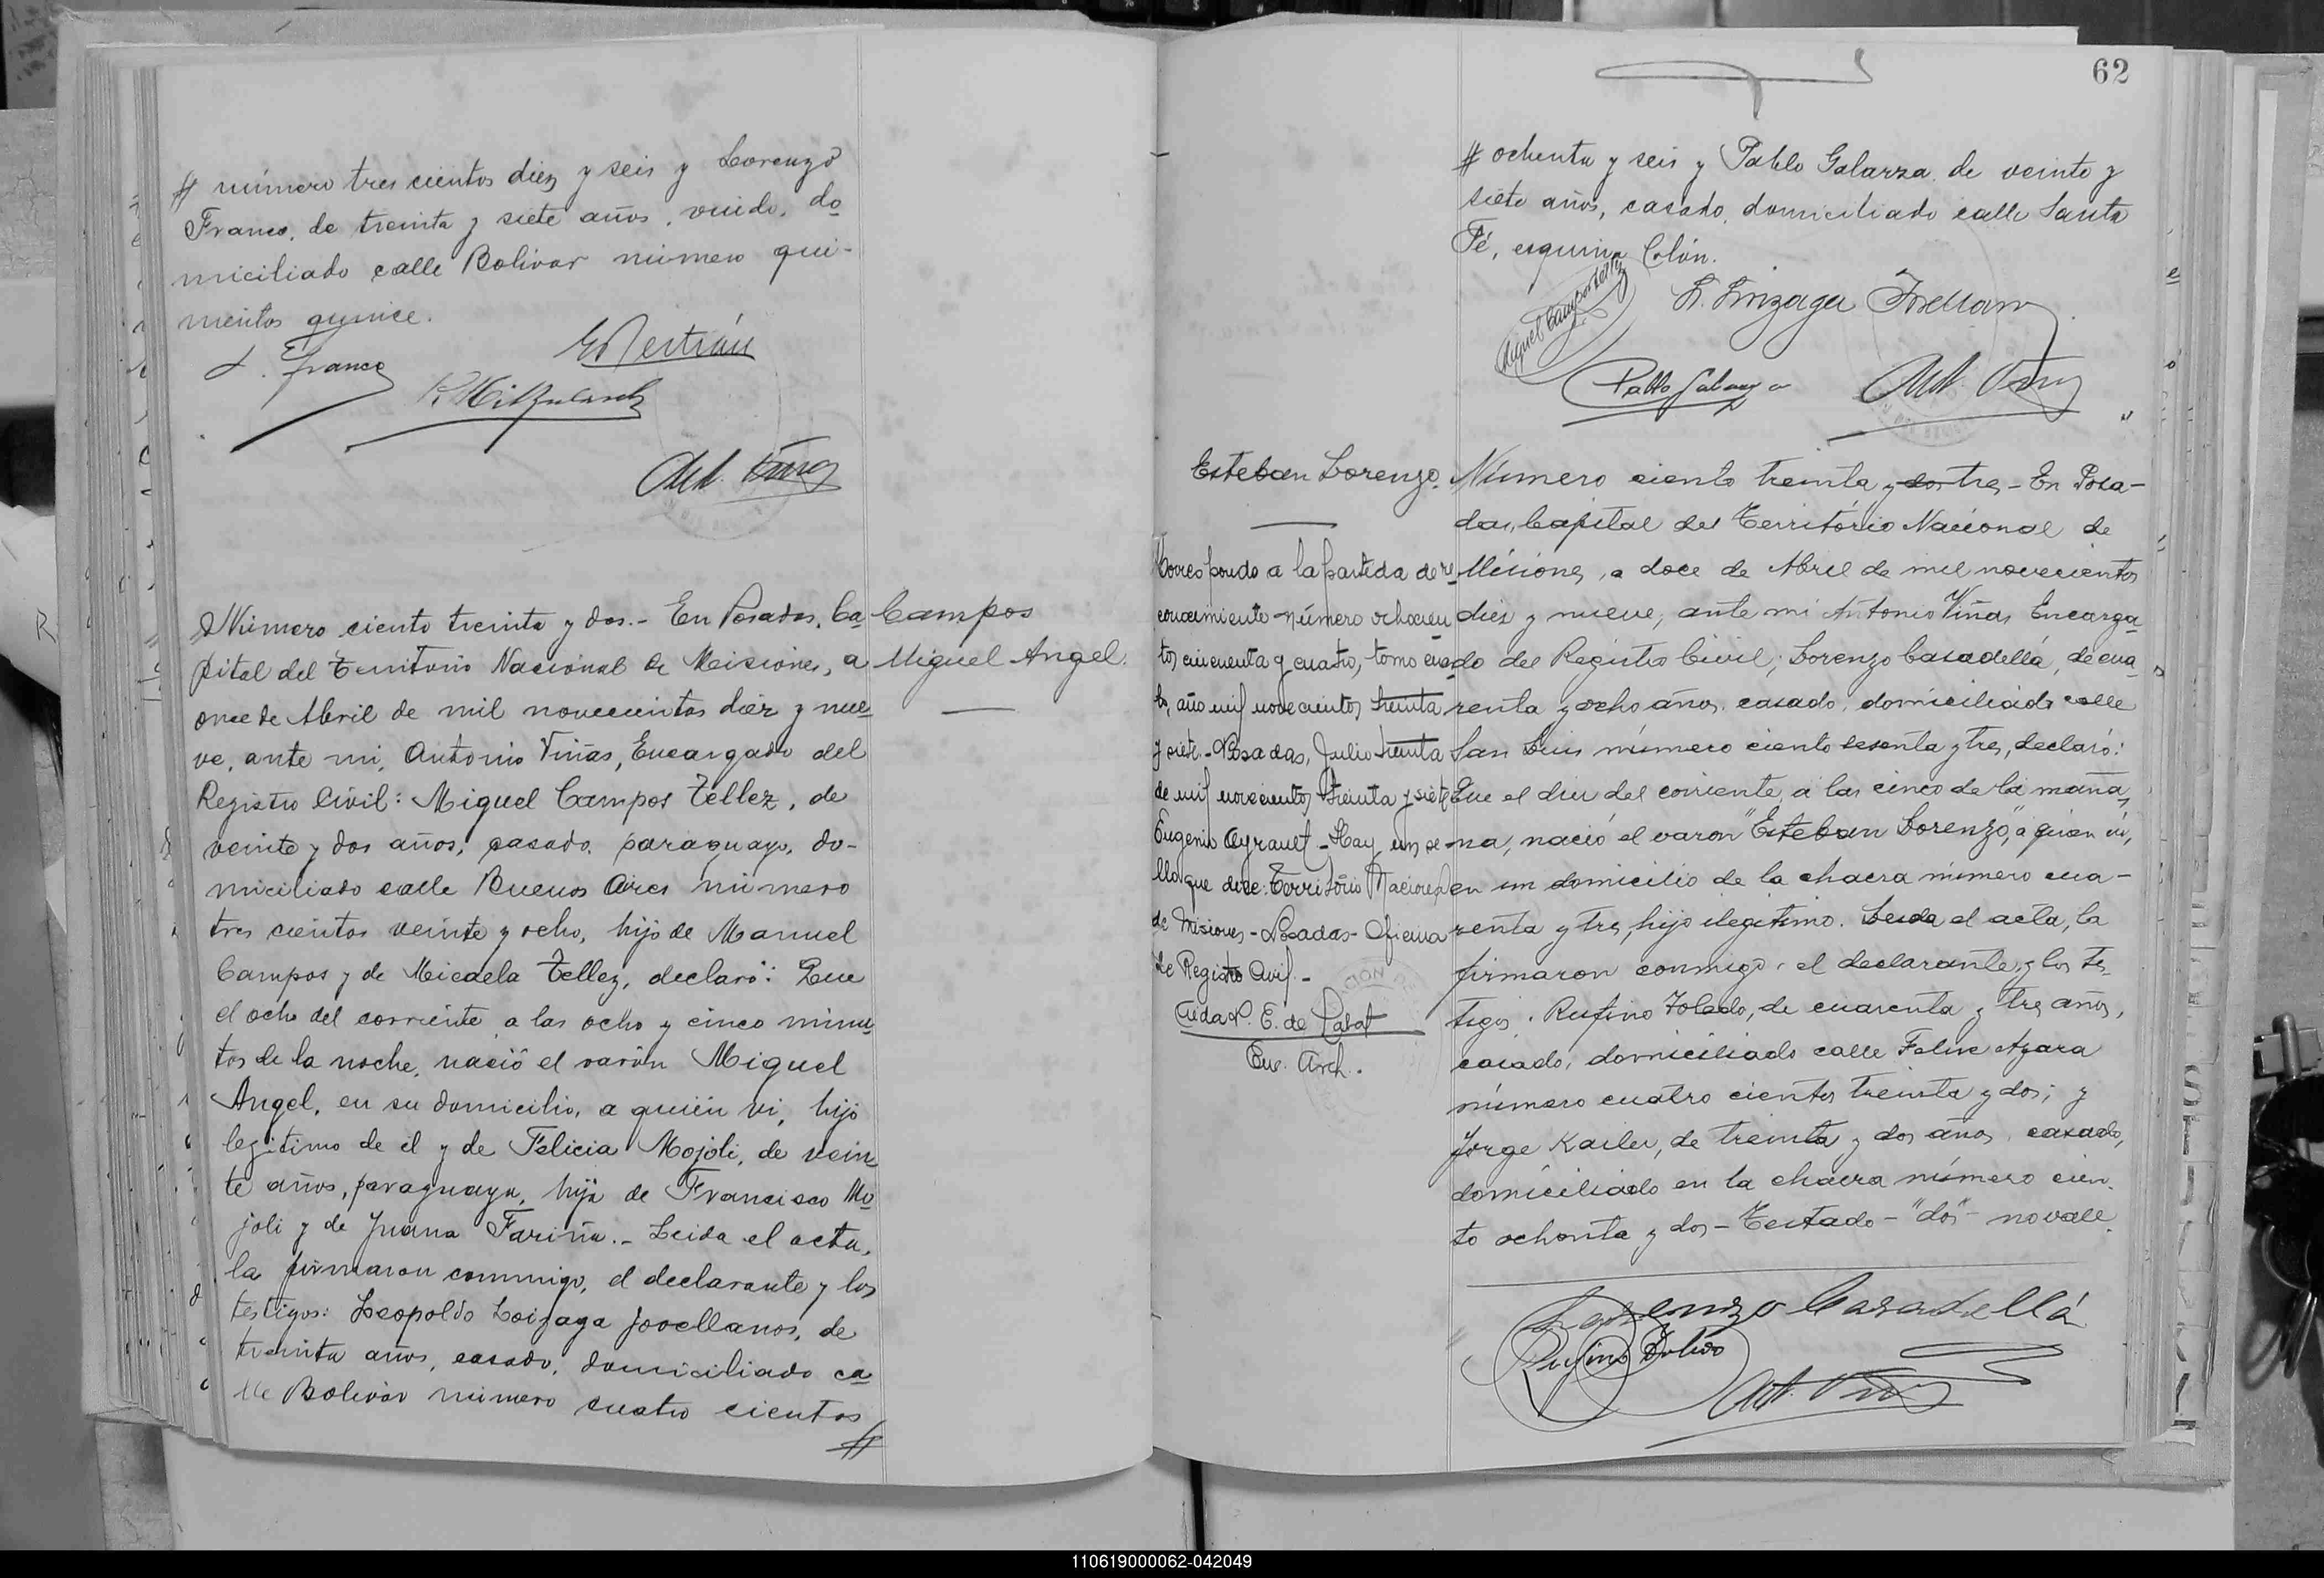 # número tres cientos diez y seis y Lorenzo
Franco, de treinta y siete años, viudo, do
miciliado calle Bolívar número qui-
nientos quince.
L. Franco
Art. Viñas
Número ciento treinta y dos.- En Posadas, Ca
pital del Territorio Nacional de Misiones, a
once de Abril de mil novecientos diez y nue
ve, ante mi, Antonio Viñas, Encargado del
Registro Civil: Miguel Campos Tellez, de
veinte y dos años, casado, paraguayo, do-
miciliado calle Buenos Aires número
tres cientos veinte y ocho, hijo de Manuel
Campos y de Micaela Tellez, declaró: Que
el ocho del corriente a las ocho y cinco minu
tos de la noche, nació el varón Miguel
Angel, en su domicilio, a quién vi, hijo
legitimo de él y de Felicia Mojoli, de vein
te años, paraguaya, hija de Francisco Mo
joli y de Juana Fariña.- Leida el acta,
la firmaron conmigo, el declarante y los
testigos: Leopoldo Loizaga Jovellanos, de
treinta años, casado, domiciliado ca
lle Bolívar número cuatro cientos
#
Campos
Miguel Angel.
62
# ochenta y seis y Pablo Galarza, de veinte y
siete años, casado, domiciliado calle Santa
Fé, esquina Colón.
Miguel Campos Tellez
L. Loizaga Jovellanos
Pablo Galarza
Art. Viñas
Esteban Lorenzo.
Corresponde a la partida de re
conocimiento número ochocien
tos cincuenta y cuatro, tomo cua
to, año mil novecientos treinta
y siete.- Posadas, Julio treinta
de mil novecientos treinta y siete
Eugenio Ayrault - Hay un se
llo que dice: Territorio Nacional
de Misiones - Posadas - Oficina
de Registro Civil.-
E. de
Enc. Arch.
Número ciento treinta y dos tres - En Posa-
das, Capital del Territorio Nacional de
Misiones, a doce de Abril de mil novecientos
diez y nueve, ante mi Antonio Viñas Encarga
do del Registro Civil; Lorenzo Casadellá, de cua
renta y ocho años, casado, domiciliado calle
San Luis número ciento sesenta y tres, declaró:
Que el diez del corriente, a las cinco de la maña
na, nació el varon "Esteban Lorenzo", a quien vi,
en un domicilio de la chacra número cua-
renta y tres, hijo ilegitimo. Leida el acta, la
firmaron conmigo, el declarante y los tes
tigos. Rufino Toledo, de cuarenta y tres años,
casado, domiciliado calle Felix Azara
número cuatro cientos treinta y dos; y
Jorge Kailer, de treinta y dos años, casado,
domiciliado en la chacra número cien
to ochenta y dos - Testado - "dos" - no vale.
Lorenzo Casadellá
Rufino Toledo
Art. Viñas
110619000062-042049